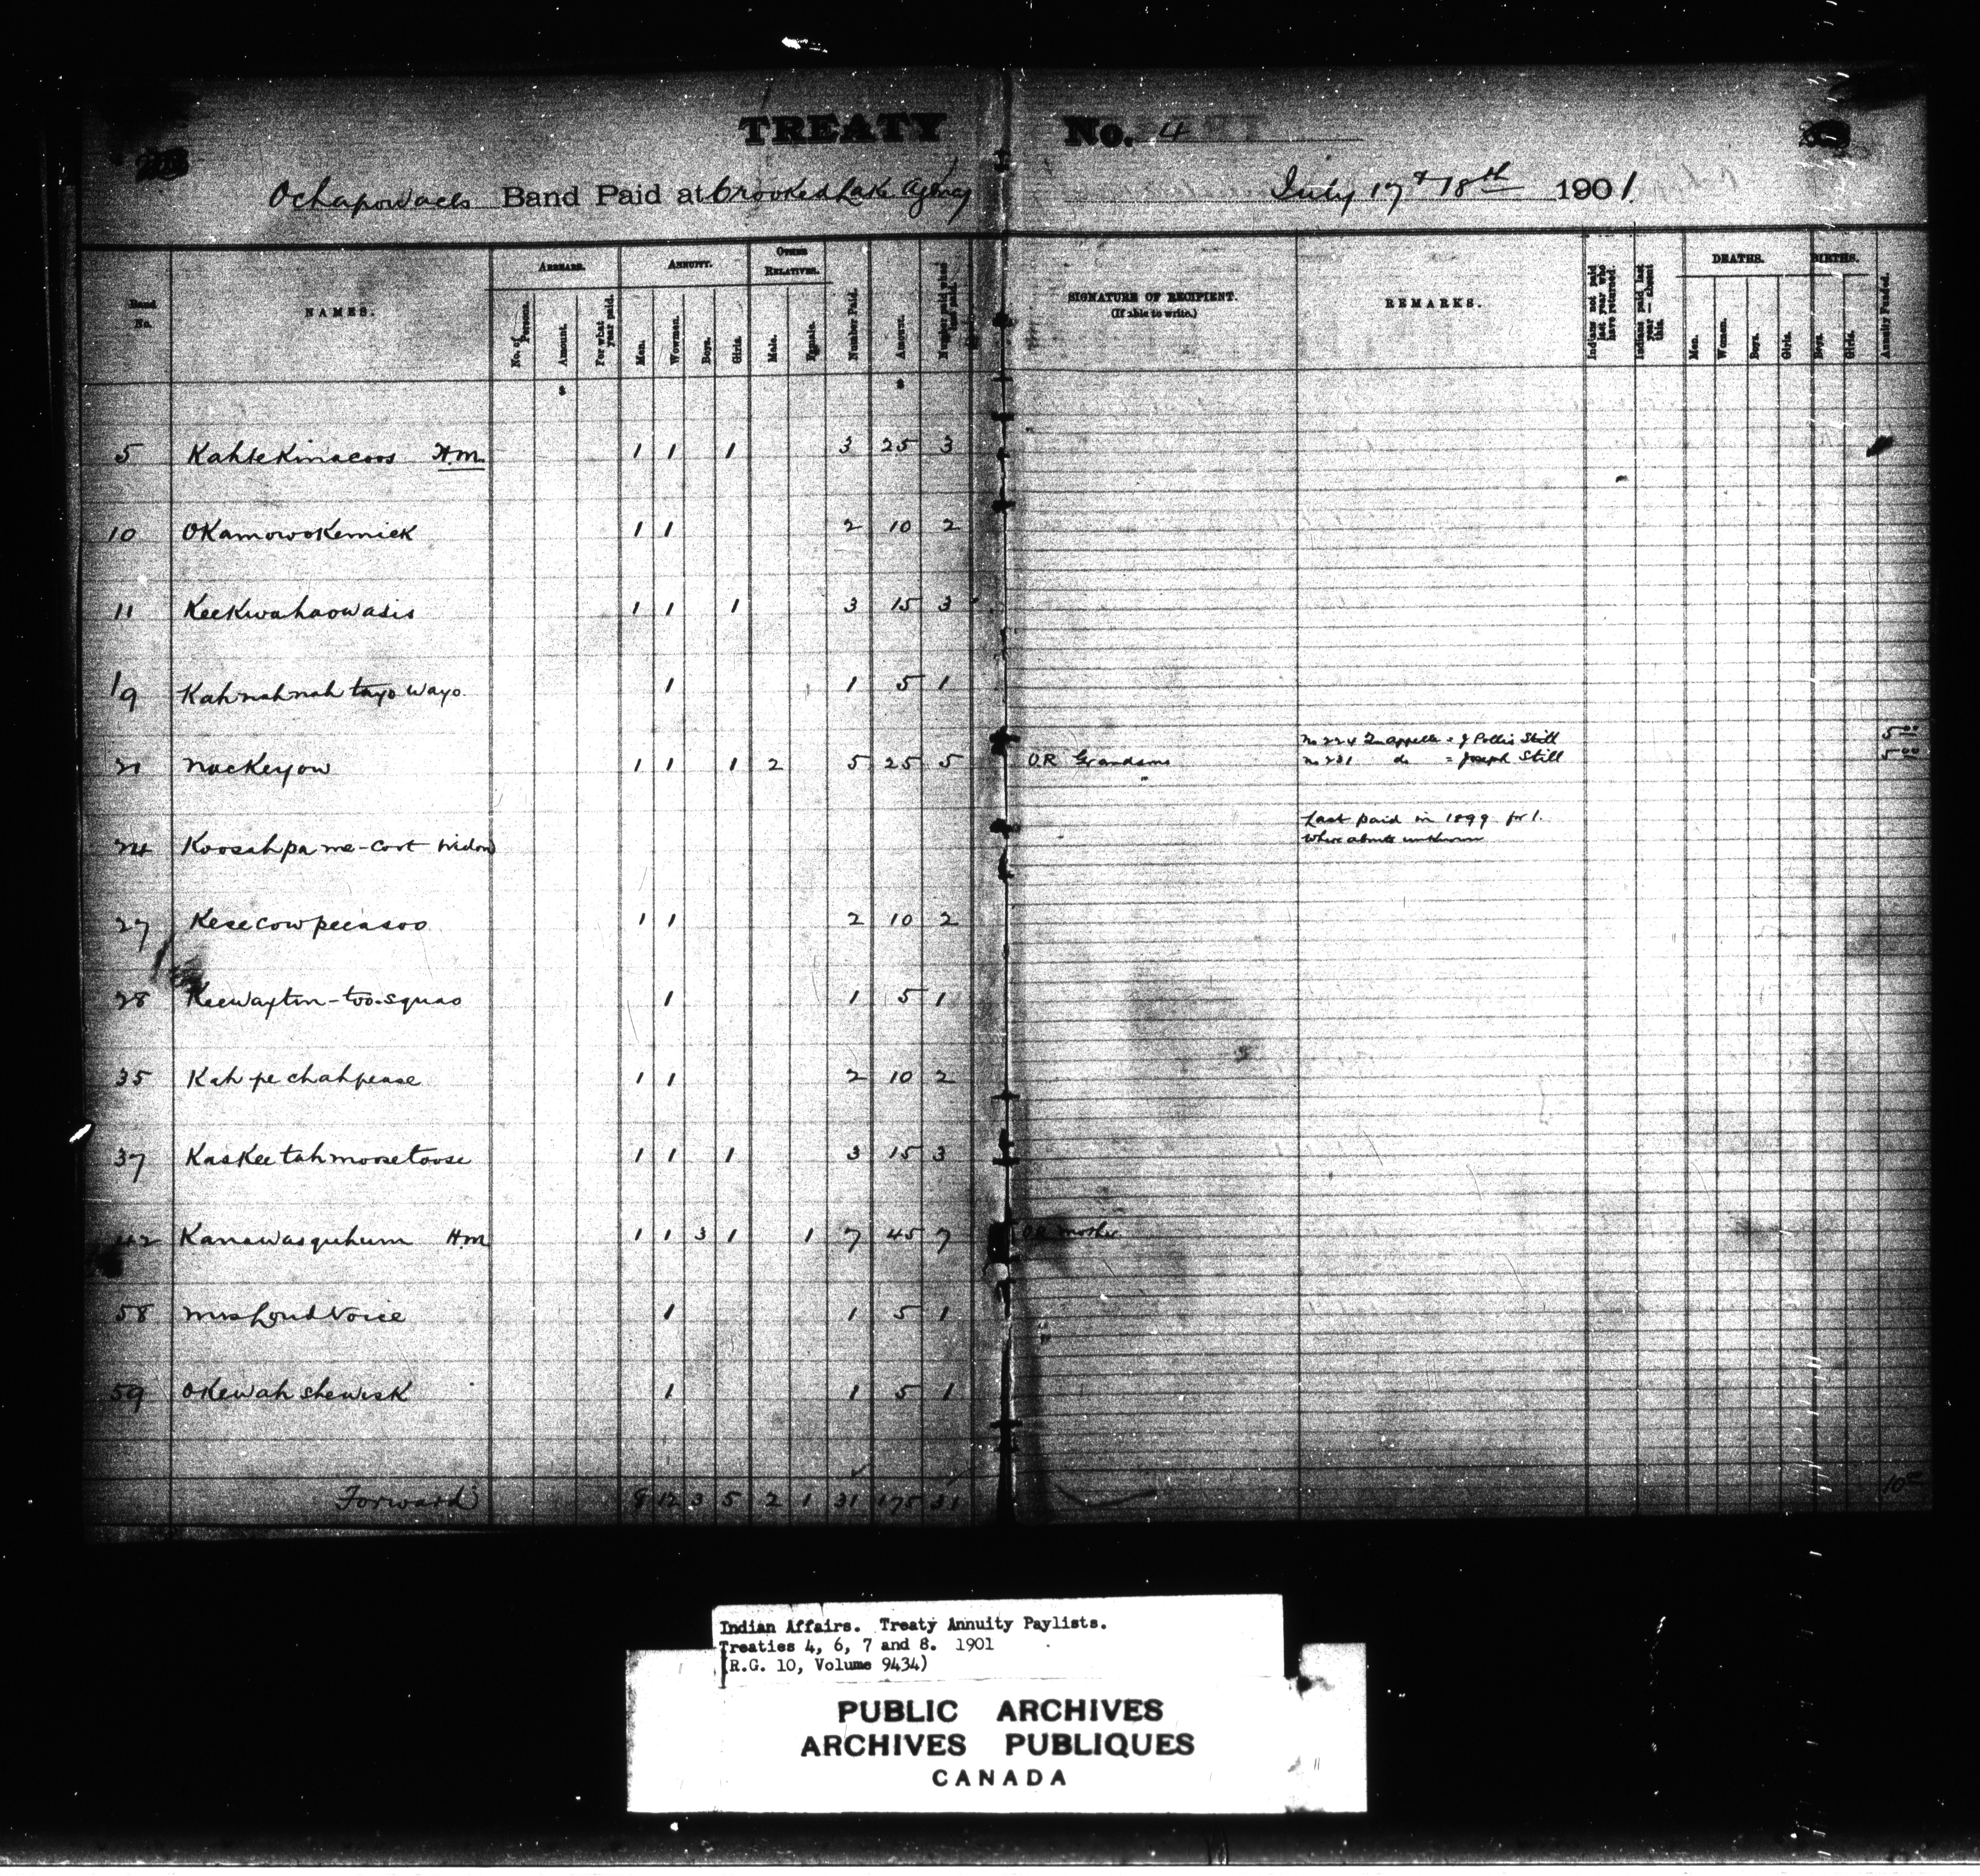 TREATY No. 4
Ochapowaces Band Paid at Crooked Lake Agency July 17 & 18th 1901.
Band No. NAMES. ARREARS. ANNUITY. OTHER RELATIVES. Number Paid. Amount. SIGNATURE OF RECIPIENT. (If able to write.) REMARKS. Indians not paid last year who have returned. Indians paid last year — absent this. DEATHS. BIRTHS. Annuity Funded.
No. of Persons. Amount. For what year paid. Men. Women. Boys. Girls. Male. Female. Men. Women. Boys. Girls. Boys. Girls.
$ $
5 Kahtekinacoos H.M. 1 1 1 3 25 3
10 Okamowokemick 1 1 2 10 2
11 Keekwahaowasis 1 1 1 3 15 3
19 Kah nah nah tayo wayo 1 1 5 1
No 224 Qu'appelle = J Pollis Still 5 00
21 Nackeyow 1 1 1 2 5 25 5 OR Grandsons No 231 do = Joseph Still 5 00
"
Last paid in 1899 for 1.
24 Koosahpa me-coot Widow Where abouts unknown
27 Kesecowpeeasoo 1 1 2 10 2
28 Keewaytin-too-squao 1 1 5 1
35 Kah pe chahpease 1 1 2 10 2
37 Kaskeetahmoosetoose 1 1 1 3 15 3
42 Kanawasquhum H.M. 1 1 3 1 1 7 45 7 OR mother
58 Mrs Loud Voice 1 1 5 1
59 Okewah shewisk 1 1 5 1
Forward 8 12 3 5 2 1 31 175 31 10 00
Indian Affairs. Treaty Annuity Paylists.
Treaties 4, 6, 7 and 8. 1901
(R.G. 10, Volume 9434)
PUBLIC ARCHIVES
ARCHIVES PUBLIQUES
CANADA